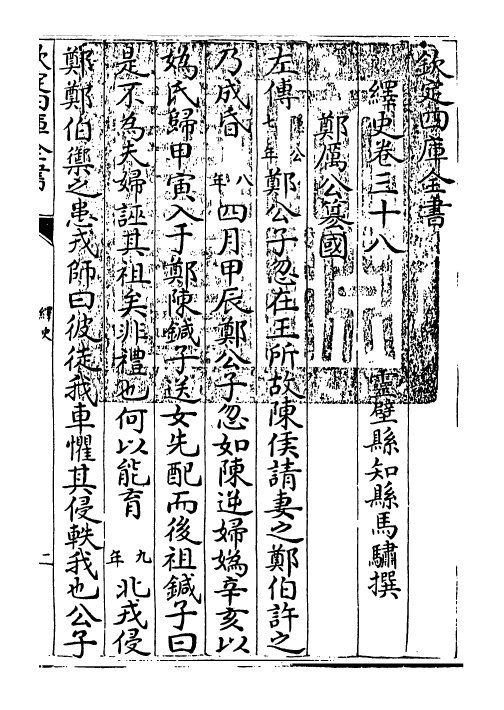 欽定四庫全書
繹史卷三十八
靈壁縣知縣馬驌撰
鄭厲公簒國
左傳隱公七年鄭公子忽在王所故陳侯請妻之鄭伯許之
乃成昏八年四月甲辰鄭公子忽如陳逆婦媯辛亥以
媯氏歸甲寅入于鄭陳鍼子送女先配而後祖鍼子曰
是不為夫婦誣其祖矣非禮也何以能育九年北戎侵
鄭鄭伯禦之患戎師曰彼徒我車懼其侵軼我也公子
繹史